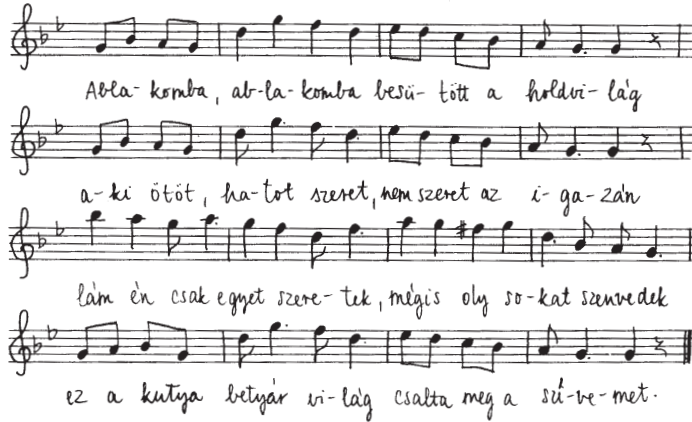 Abla- komba, ab-la-komba besü- tött a holdvi-lág
a-ki ötöt, ha-tot szeret, nem szeret az i-ga-zán
lám én csak egyet szere-tek, mégis oly so-kat szenvedek
ez a kutya betyár vi-lág csalta meg a szí-ve-met.